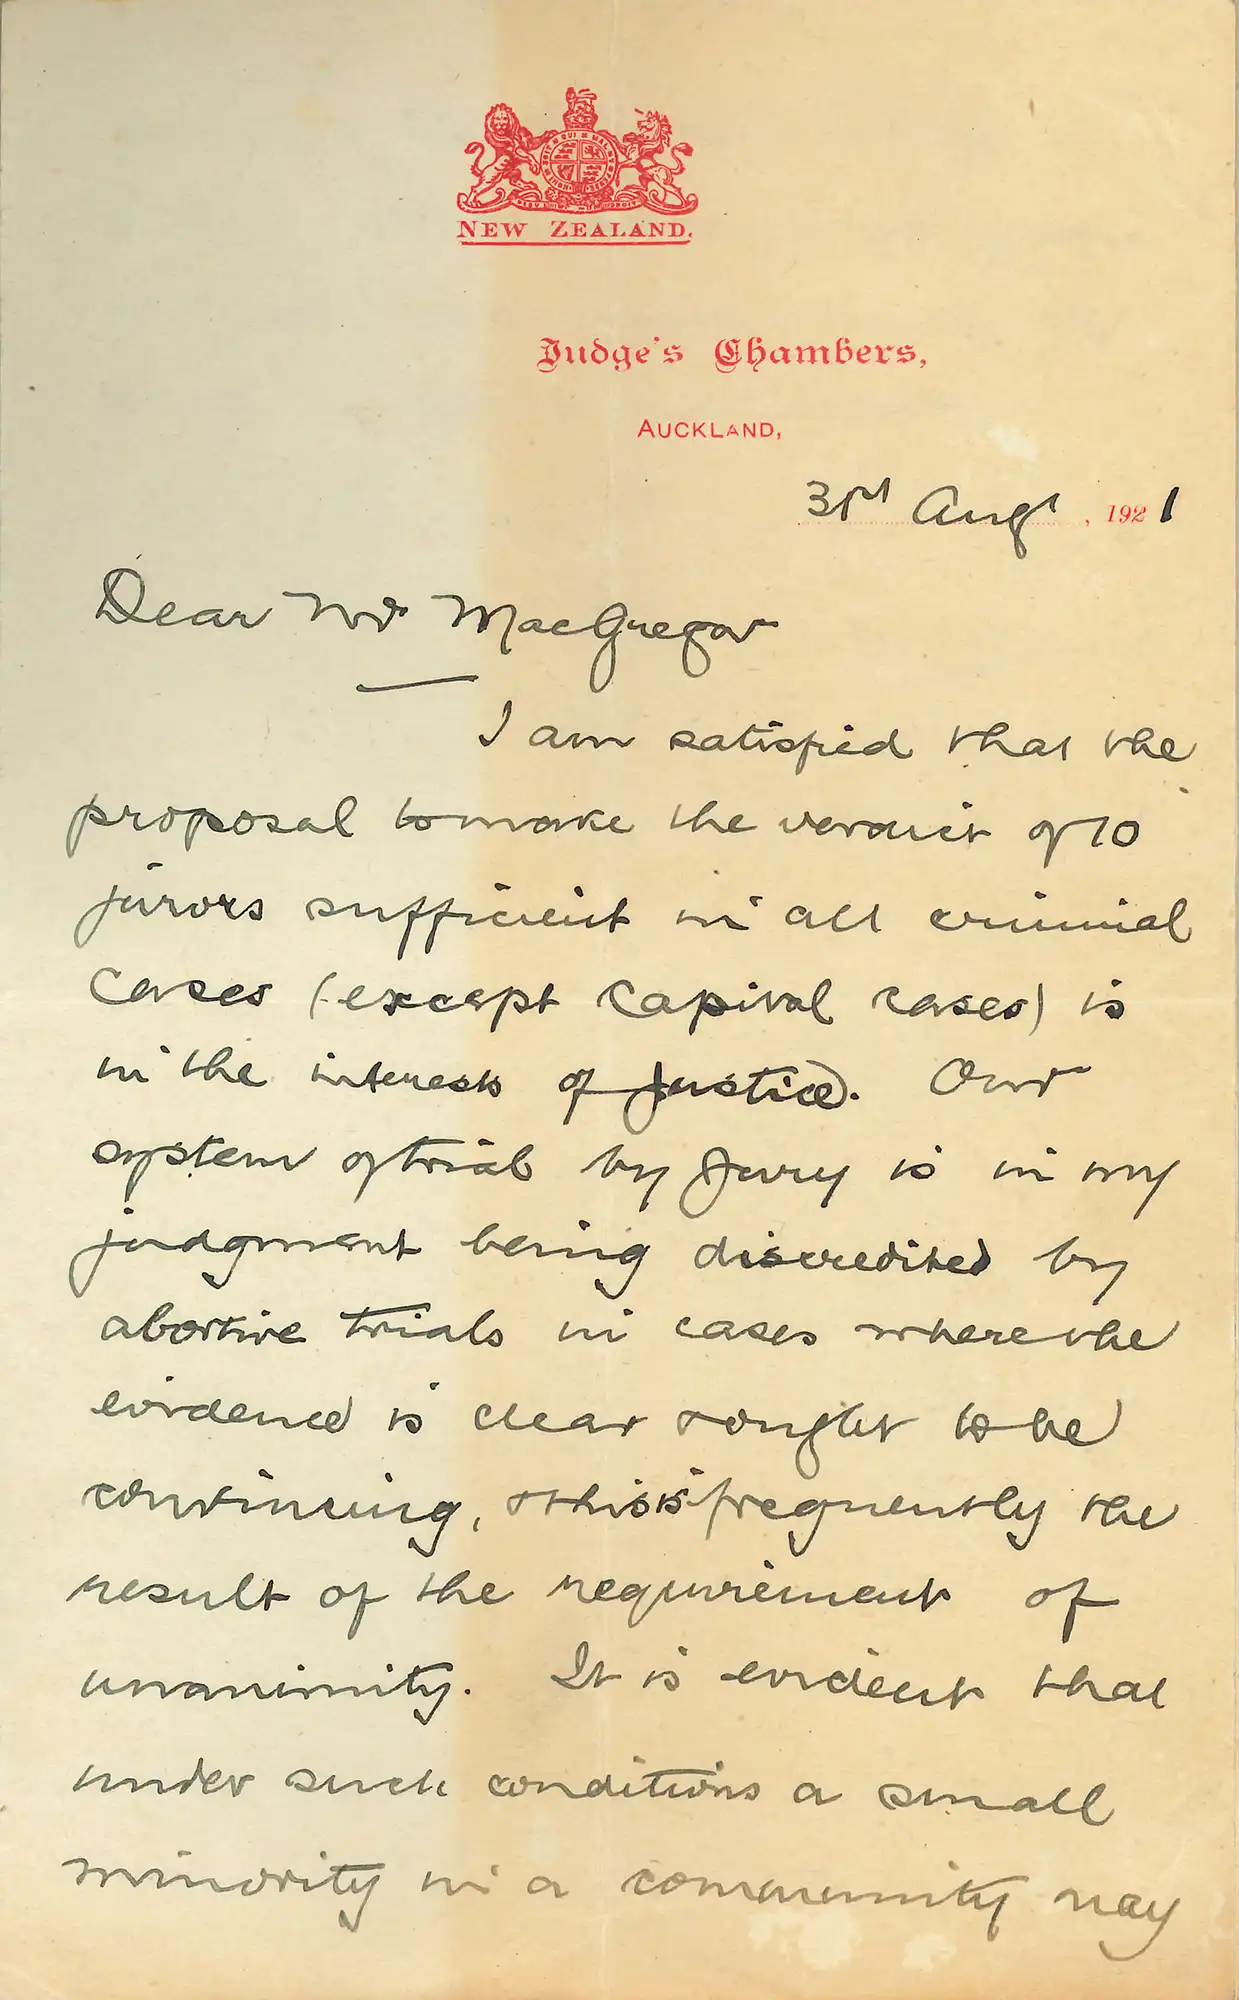 NEW ZEALAND.
Judge's Chambers,
AUCKLAND,
31st Augt, 1921
Dear Mr MacGregor
I am satisfied that the
proposal to make the verdict of 10
jurors sufficient in all criminal
cases (except capital cases) is
in the interests of justice. Our
system of trial by Jury is in my
judgment being discredited by
abortive trials in cases where the
evidence is clear & ought to be
convincing, & this is frequently the
result of the requirement of
unanimity. It is evident that
under such conditions a small
minority in a community may